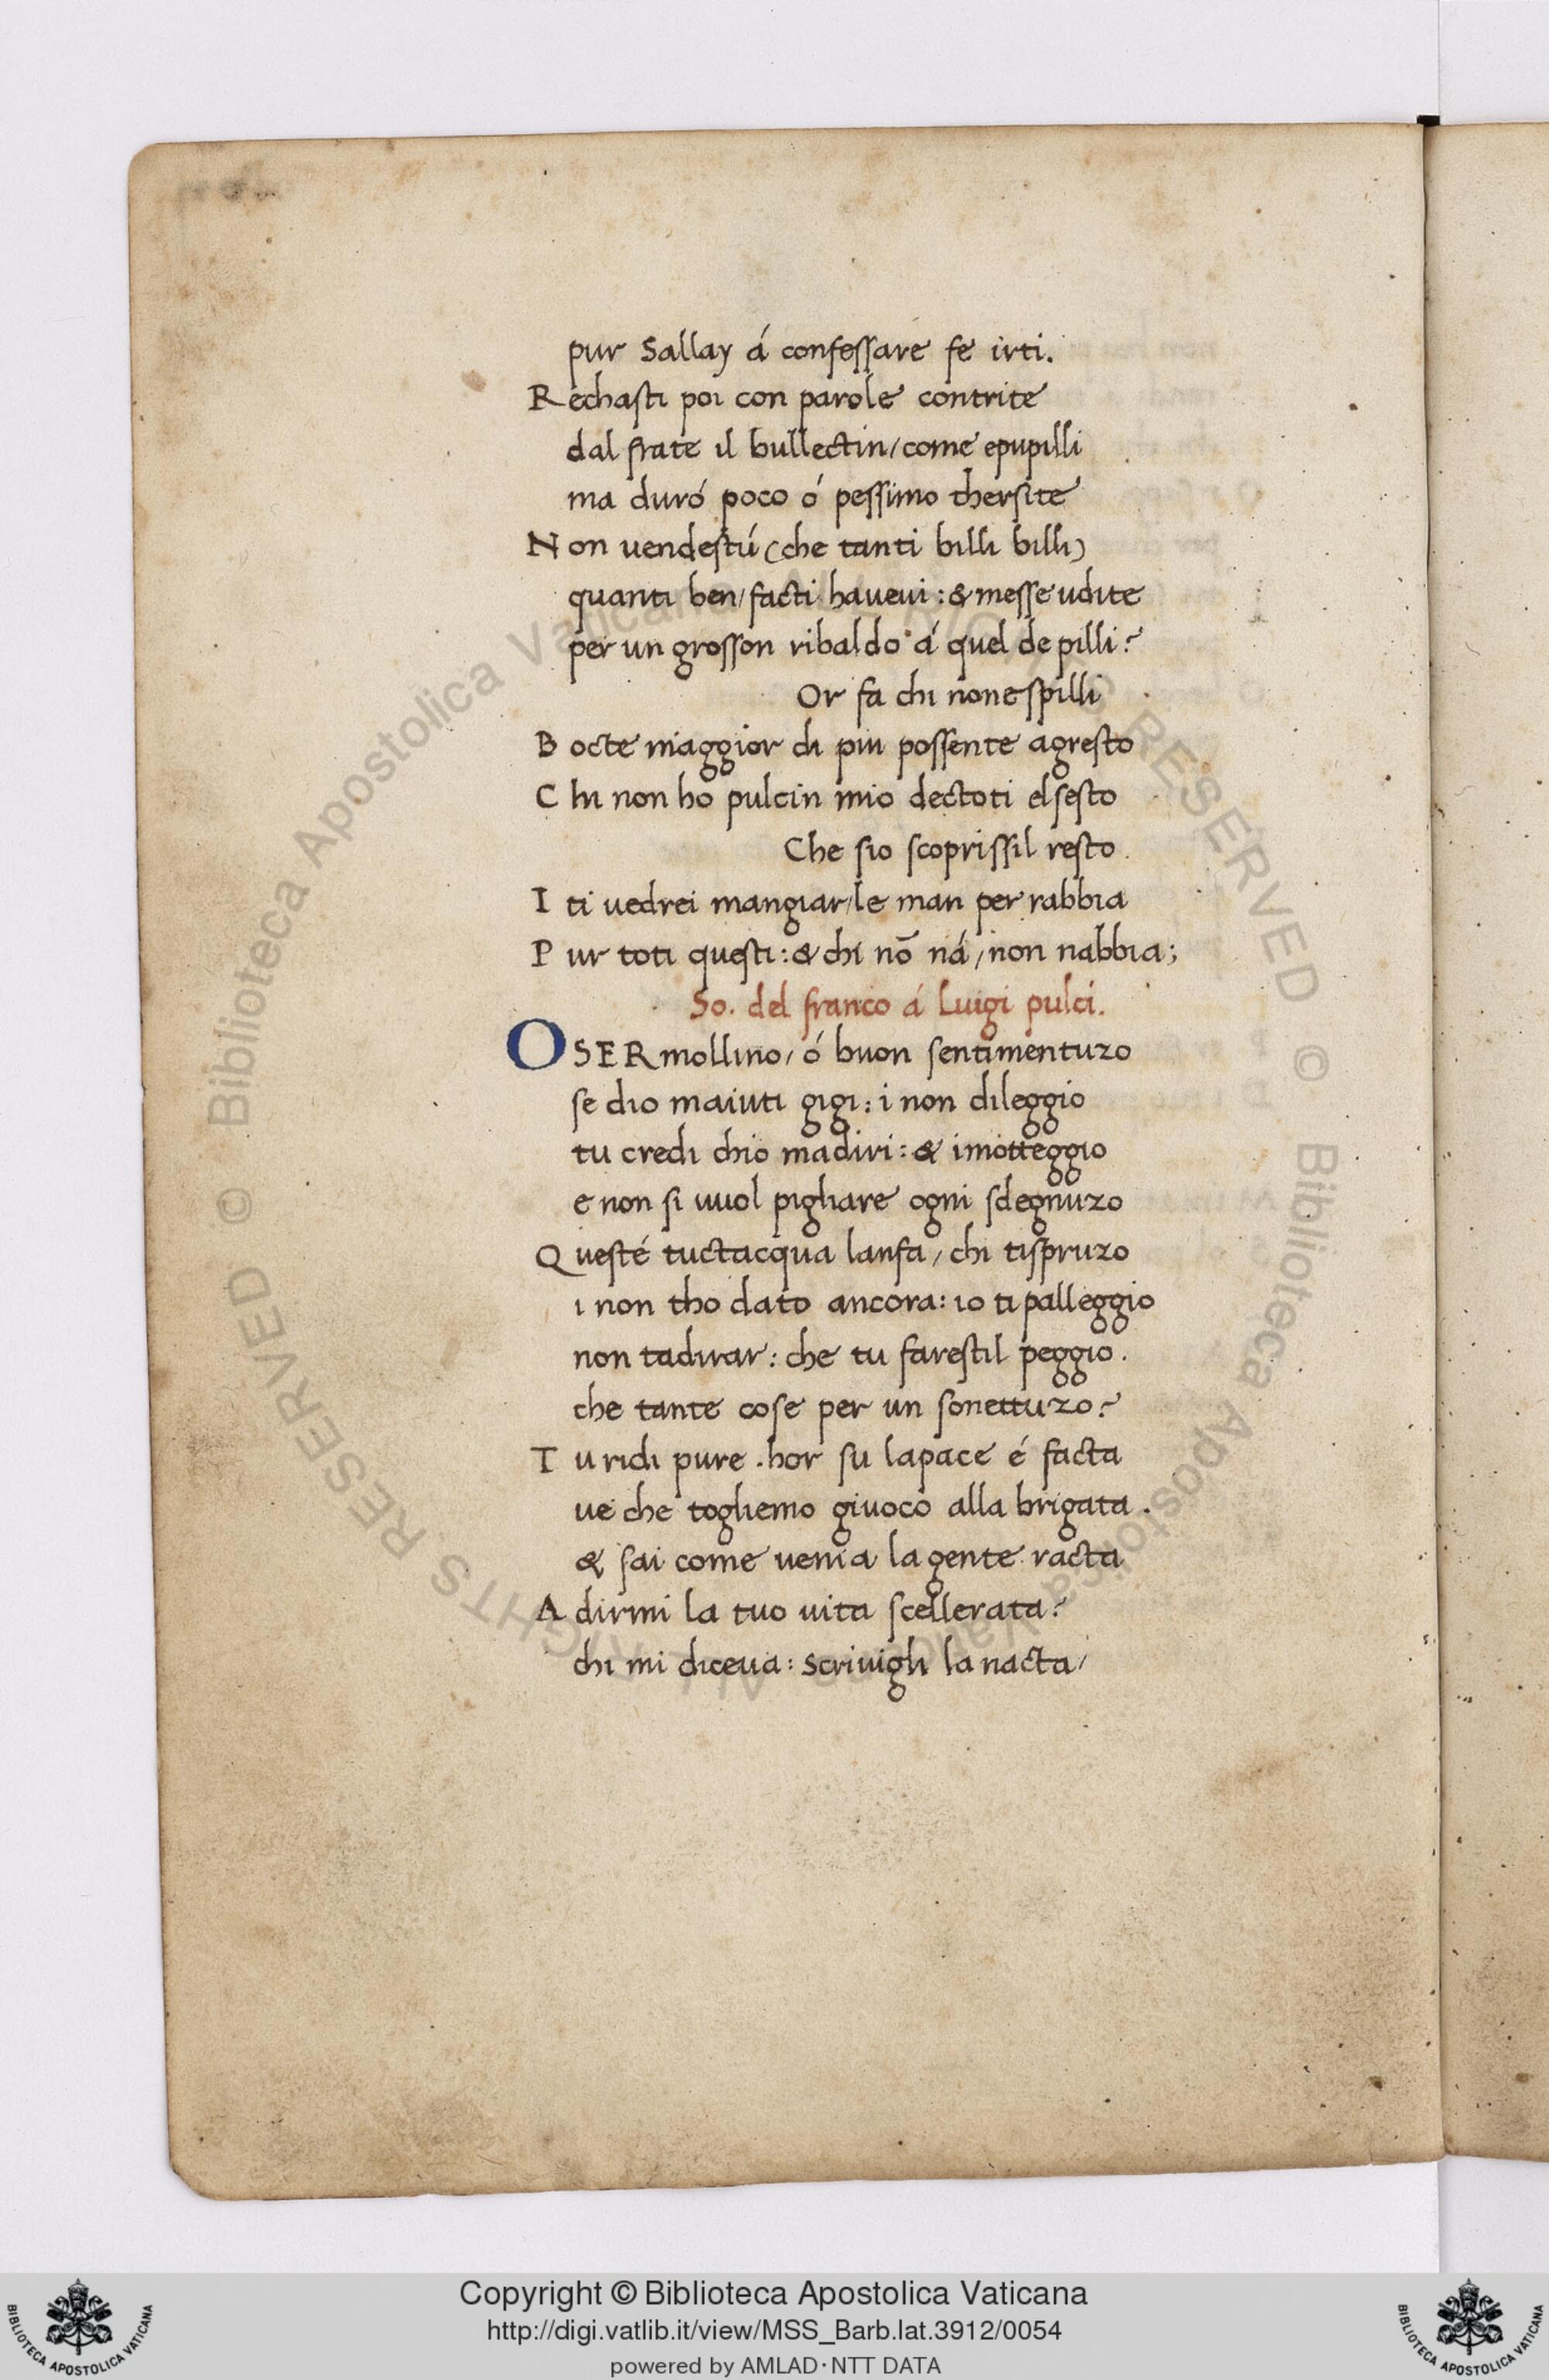 pur Sallay á confessare fe irti.
Rechasti poi con parole contrite
dal frate il bullectin/come epupilli
ma duró poco ó pessimo thersite
Non uendestú (che tanti billi billi)
quanti ben/facti haueui: & messe udite
per un grosson ribaldo á quel de pilli?
Or fa chi none spilli
Bocte maggior di piu possente agresto
Chi non ho pulcin mio dectoti elsesto
Che sio scoprissil resto.
I ti uedrei mangiar/le man per rabbia
Pur toti questi: & chi nō ná/non nabbia;
So. del franco á Luigi pulci.
O SER mollino/ó buon sentimentuzo
se dio maiuti gigi: i non dileggio
tu credi chio madiri: & imotteggio
e non si uuol pigliare ogni sdegnuzo
Questé tuctacqua lanfa/chi tispruzo
i non tho dato ancora: io ti palleggio
non tadirar: che tu farestil peggio.
che tante cose per un sonettuzo?
Tu ridi pure. hor su lapace é facta
ue che togliemo giuoco alla brigata.
& sai come uenia la gente racta
A dirmi la tuo uita scellerata?
chi mi diceua: scriuigli la nacta/
Copyright © Biblioteca Apostolica Vaticana
http://digi.vatlib.it/view/MSS_Barb.lat.3912/0054
powered by AMLAD·NTT DATA